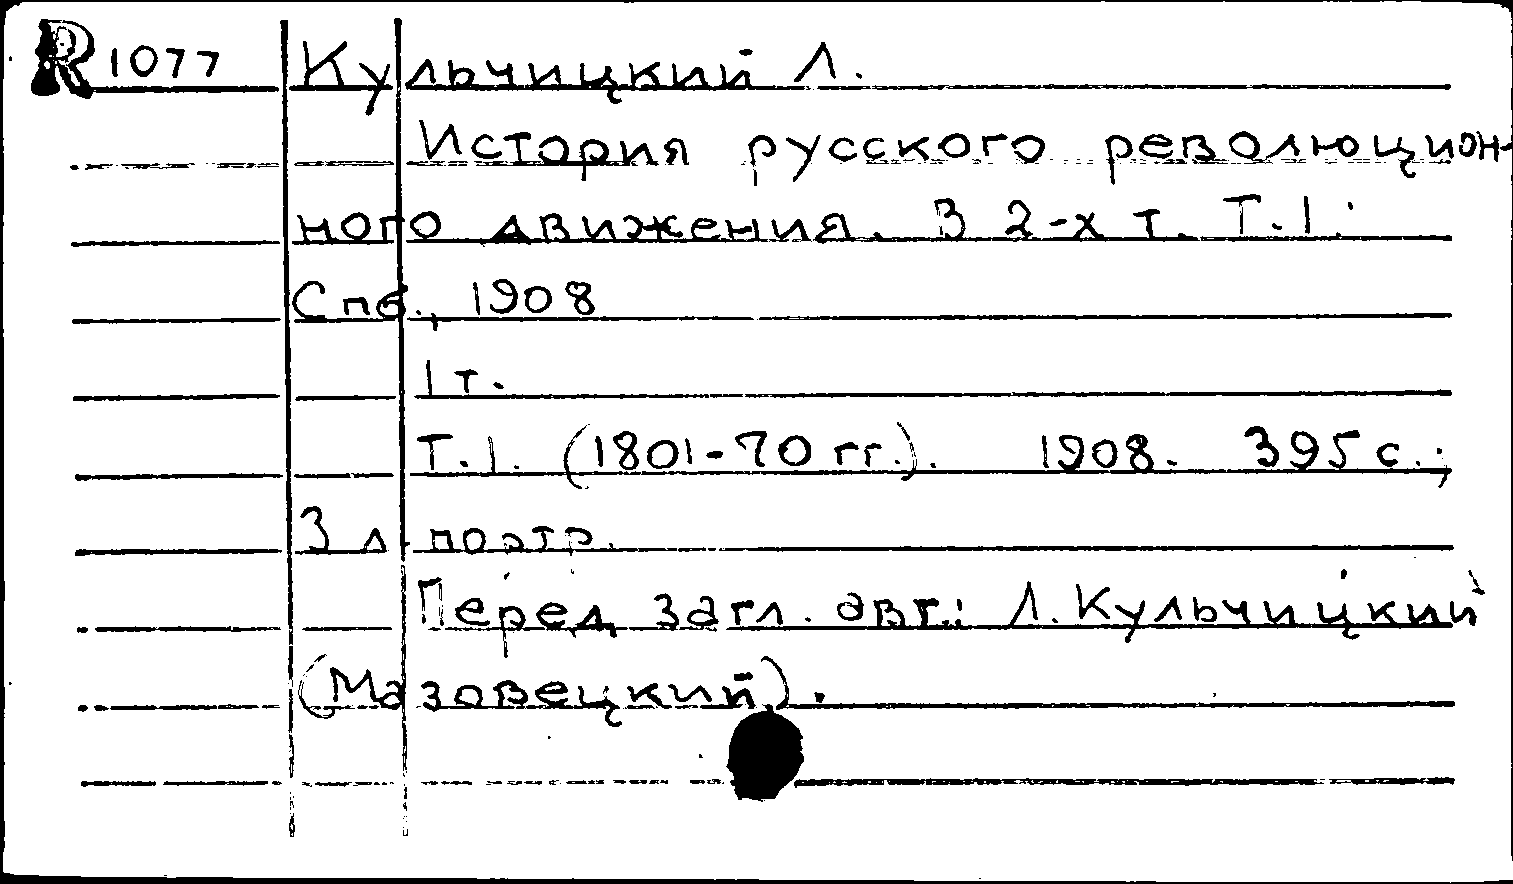 R 1077 Кульчицкий Л.
История русского революцион-
ного движения. В 2-х т. Т.1.
Спб., 1908
1 т.
Т.1. (1801-70 гг.). 1908. 395 с.;
3 л. портр.
Перед загл. авт.: Л. Кульчицкий
(Мазовецкий).